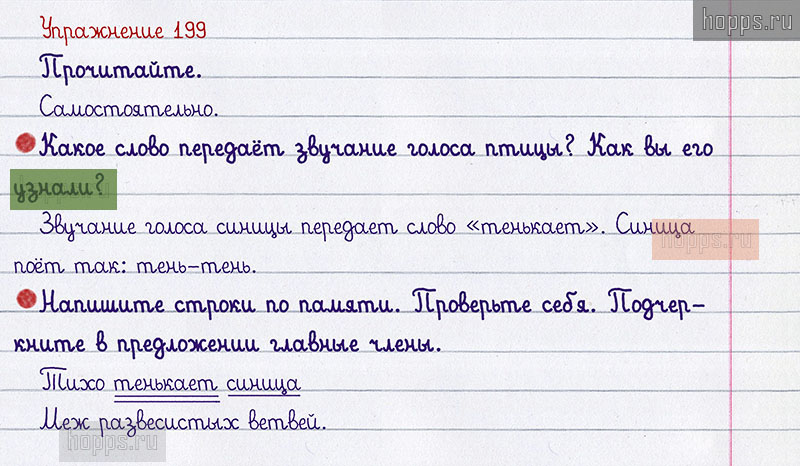 hopps.ru
Упражнение 199
Прочитайте.
Самостоятельно.
Какое слово передаёт звучание голоса птицы? Как вы его
узнали?
Звучание голоса синицы передает слово «тенькает». Синица
hopps.ru
поёт так: тень-тень.
Напишите строки по памяти. Проверьте себя. Подчер-
кните в предложении главные члены.
Тихо тенькает синица
Меж развесистых ветвей.
hopps.ru